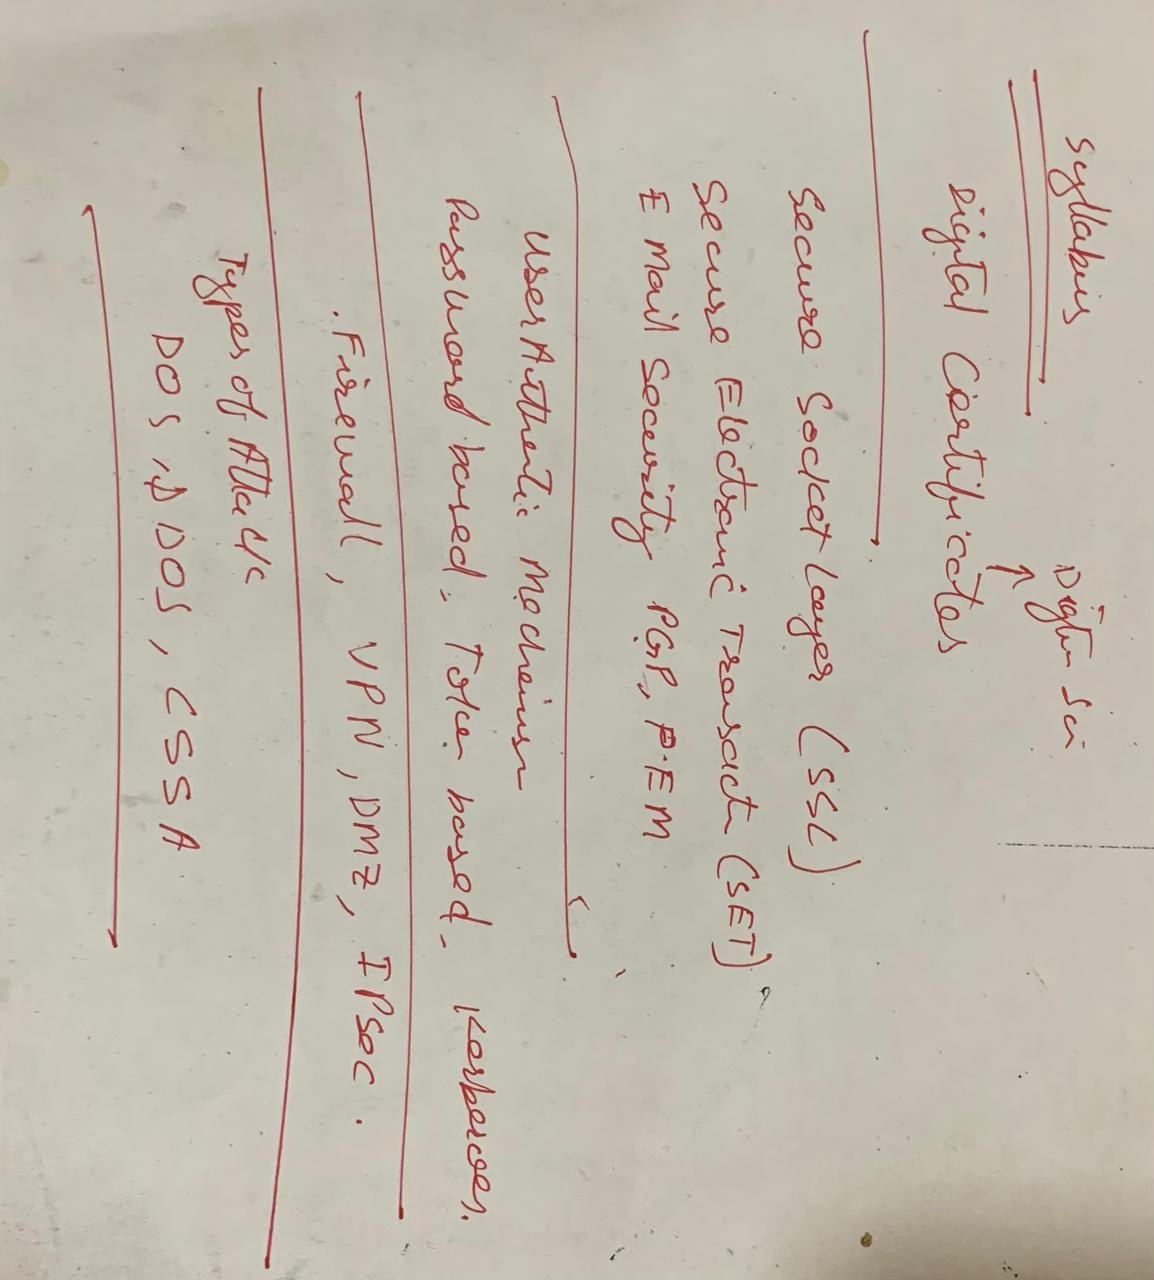 Syllabus
Digital Certificates
Secure Socket Layer (SSL)
Secure Electronic Transact (SET)
E Mail Security PGP, P.EM
User Authentic Mechanism
Password based, Token based, Kerberoes.
.Firewall, VPN, DMZ, IPSec.
Types of Attack
DOS, DDOS, CSSA